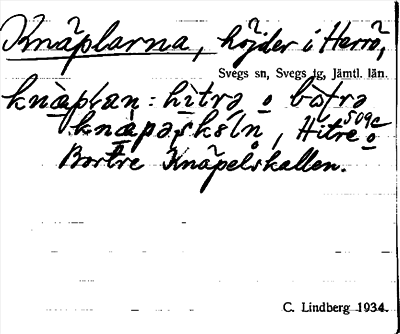 Knäplarna, höjder i Herrö,
Svegs sn, Svegs tg, Jämtl. län.
knäplan: hìtrə o bòtrə
knäpəskáln, Hitre o
509c
Bortre Knäpelskallen.
C. Lindberg 1934.